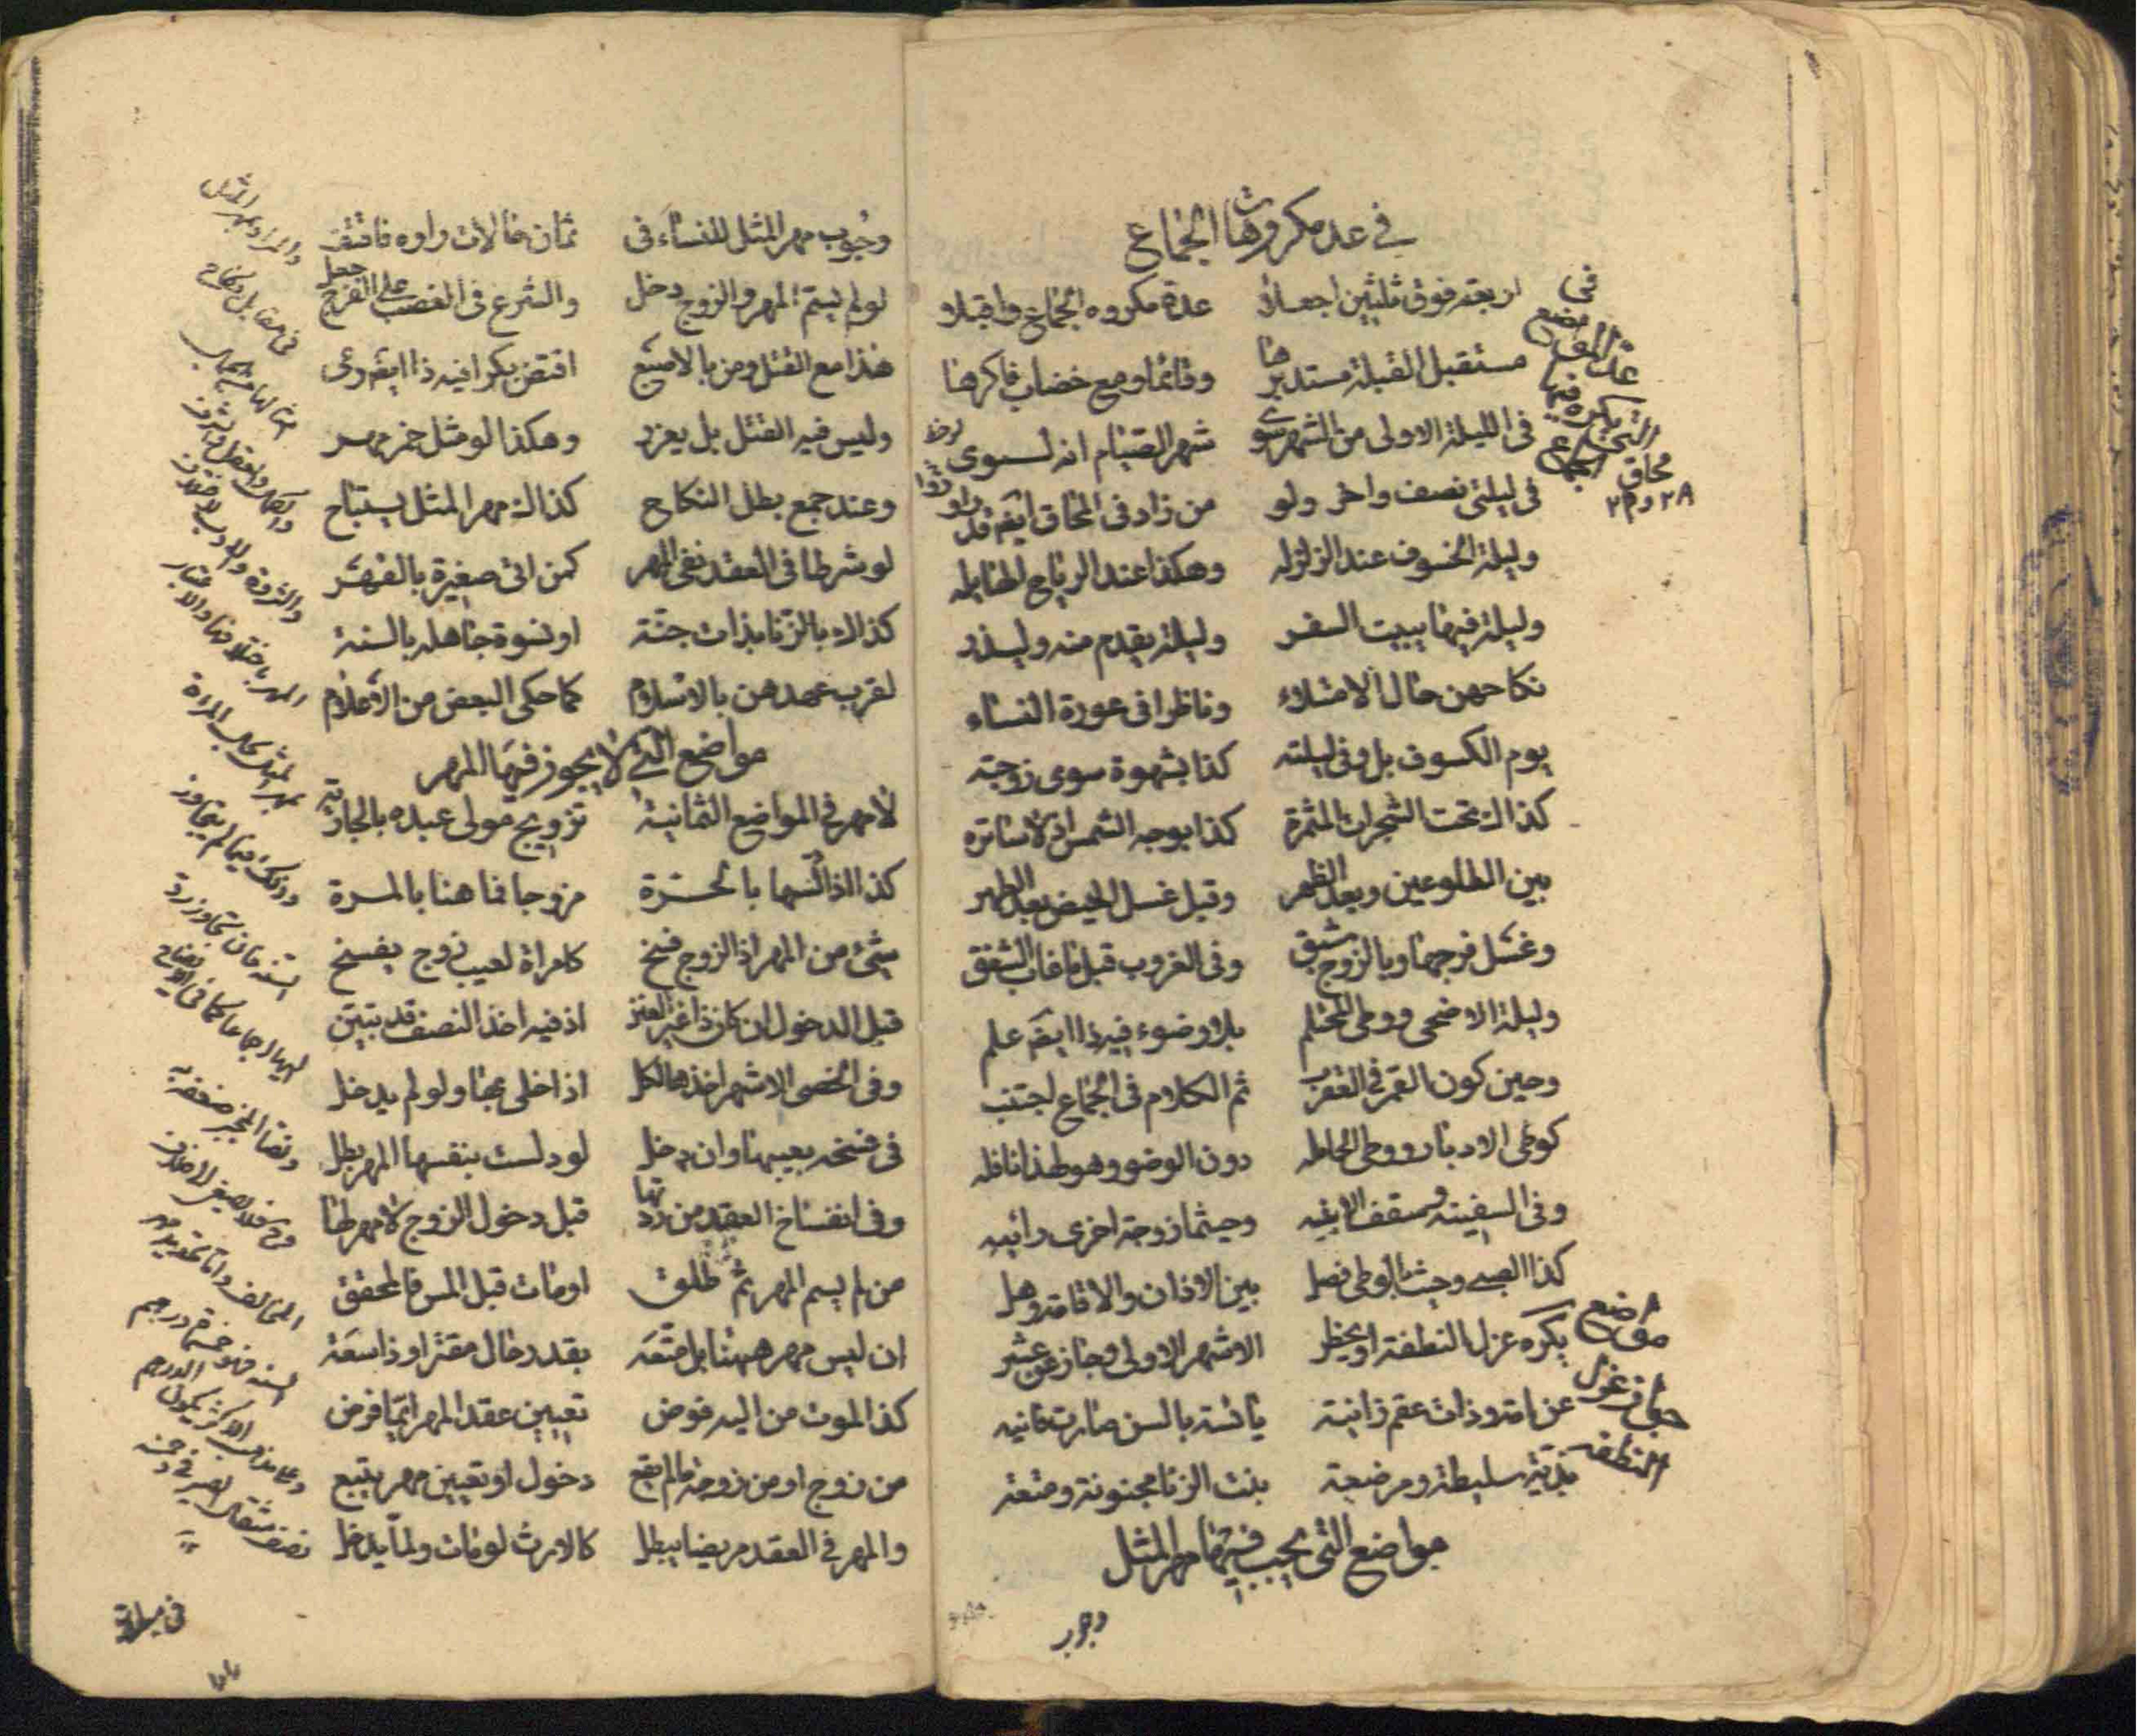 في عدد مكروهات الجماع
اربعة فوق ثلثين اجعلا عدة مكروه الجماع واقبلا
مستقبل القبلة مستدبرها وقائما ومع خضاب فاكرها
فى الليلة الاولى من الشهر سوى شهر الصيام انه لسوى
فى ليلتى نصف واخر ولو من زاد فى المحاق ايضا قد راو
وليلة الخسوف عند الزلزله وهكذا عند الرياح الهايله
وليلة فيها يبيت السفر وليلة يقدم منه وليذر
نكاحهن حال الامتلاء وناظرا فى عورة النساء
يوم الكسوف بل وفى ليلته كذا بشهوة سوى زوجته
كذاك تحت الشجرات المثمرة كذا بوجه الشمس اذ لا ساتره
بين الطلوعين وبعد الظهر وقبل غسل الحيض بعد الطهر
وغسل فرجها وبالزوج شبق وفى الغروب قبل ما غاب الشفق
وليلة الاضحى ووطى المحتلم بلا وضوء فيه ذا ايضا علم
وحين كون القمر فى العقرب ثم الكلام فى الجماع اجتنب
كوطى الادبار ووطى الحامله دون الوضوء وهو لهذا نافله
وفى السفينة وسقف الابنيه وحيثما زوجة اخرى رائيه
كذا الصبى وحيث بالوطى فصل بين الاذان والاقامة وهل
يكره عزل النطفة او يحظر الاشهر الاولى وجاز عن عشر
عن امة وذات عقم زانية يائسة بالسن صارت فانيه
بذية سليطة ومرضعة بنت الزنا مجنونة ومتعة
مواضع التى يجب فيها مهر المثل
فى
عد المواضع
التى يكره فيها
الجماع
محاق
٢٨ و ٢٩
مواضع
جواز عزل
النطفة
وجوب
وجوب مهر المثل للنساء فى ثمان حالات راوه فاقتف
لو لم يتم المهر والزوج دخل والشرع فى الغصب على الفرج جعل
هذا مع القتل ومن بالاصبع افتض بكرا فيه ذا ايضا وعى
وليس فيه القتل بل يعزر وهكذا لو مثل خمر مهر
وعند جمع بطل النكاح كذاك مهر المثل يستباح
لو شرطا فى العقد نفى المهر كمن اتى صغيرة بالقهر
كذاك بالزنا بذات جنة او نسوة جاهلة بالسنة
لقرب عهدهن بالاسلام كما حكى البعض من الاعلام
مواضع التى لا يجوز فيها المهر
لا مهر فى المواضع الثمانية تزويج مولى عبده بالجارية
كذا اذا اتسمها بالحرة مزوجا فما هنا بالمرة
شىء من المهر اذ الزوج فسخ كامراة لعيب زوج يفسخ
قبل الدخول ان كان ذا غير العنن اذ فيه اخذ النصف قد تبين
وفى الخصى الاشهر اخذها لكل اذا خلى بها ولو لم يدخل
فى فسخه بعيبها وان دخل لو دلست بنفسها المهر بطل
وفى انفساخ العقد من ردتها قبل دخول الزوج لا مهر لها
من لم يسم المهر ثم طلق او مات قبل المس فالمحقق
ان ليس مهر ههنا بل متعه بقدر حال مقترا او ذا سعة
كذا الموت من اليه فوض تعيين عقد المهر ايما فرض
من زوج او من زوجة ما لم يقع دخول او تعيين مهر يتبع
والمهر فى العقد مريضا يبطل كالارث لو مات ولما يدخل
والمراد بمهر المثل
فى مقابل نكاح
امثالها من
مهر المثل بحال المراة
وذلك فيما لم يتجاوز
السنة فان تجاوز رد
اليها اجماعا كما فى الايضاح